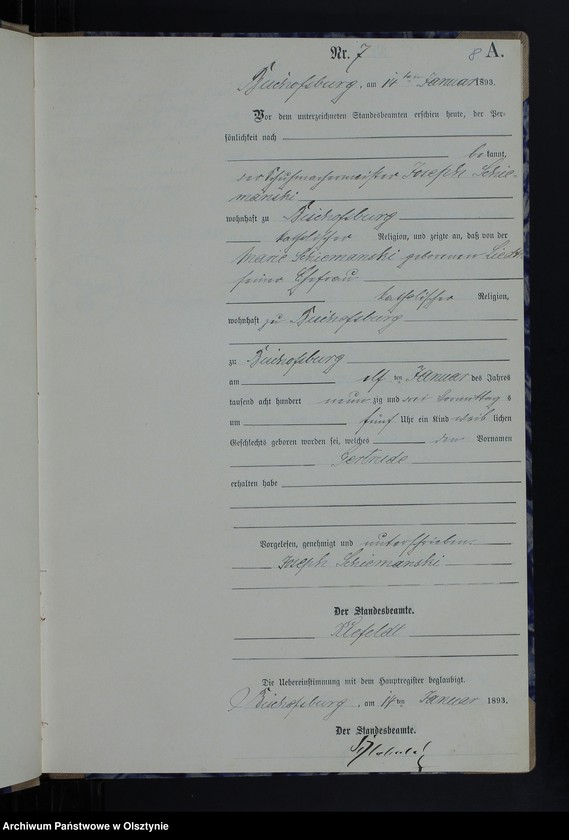 Nr. 7
8 A.
Bischofsburg, am 14ten Januar 1893.
Vor dem unterzeichneten Standesbeamten erschien heute, der Per-
sönlichkeit nach
bekannt,
der Schuhmachermeister Joseph Schie-
manski
wohnhaft zu Bischofsburg
katholischer Religion, und zeigte an, daß von der
Marie Schiemanski geborenen
seiner Ehefrau
katholischer Religion,
wohnhaft zu Bischofsburg
zu Bischofsburg
am elf ten Januar des Jahres
tausend acht hundert neun zig und drei Vormittag s
um fünf Uhr ein Kind weib lichen
Geschlechts geboren worden sei, welches den Vornamen
Gertrude
erhalten habe
Vorgelesen, genehmigt und unterschrieben
Joseph Schiemanski
Der Standesbeamte.
Die Uebereinstimmung mit dem Hauptregister beglaubigt.
Bischofsburg, am 14 ten Januar 1893.
Der Standesbeamte.
Archiwum Państwowe w Olsztynie